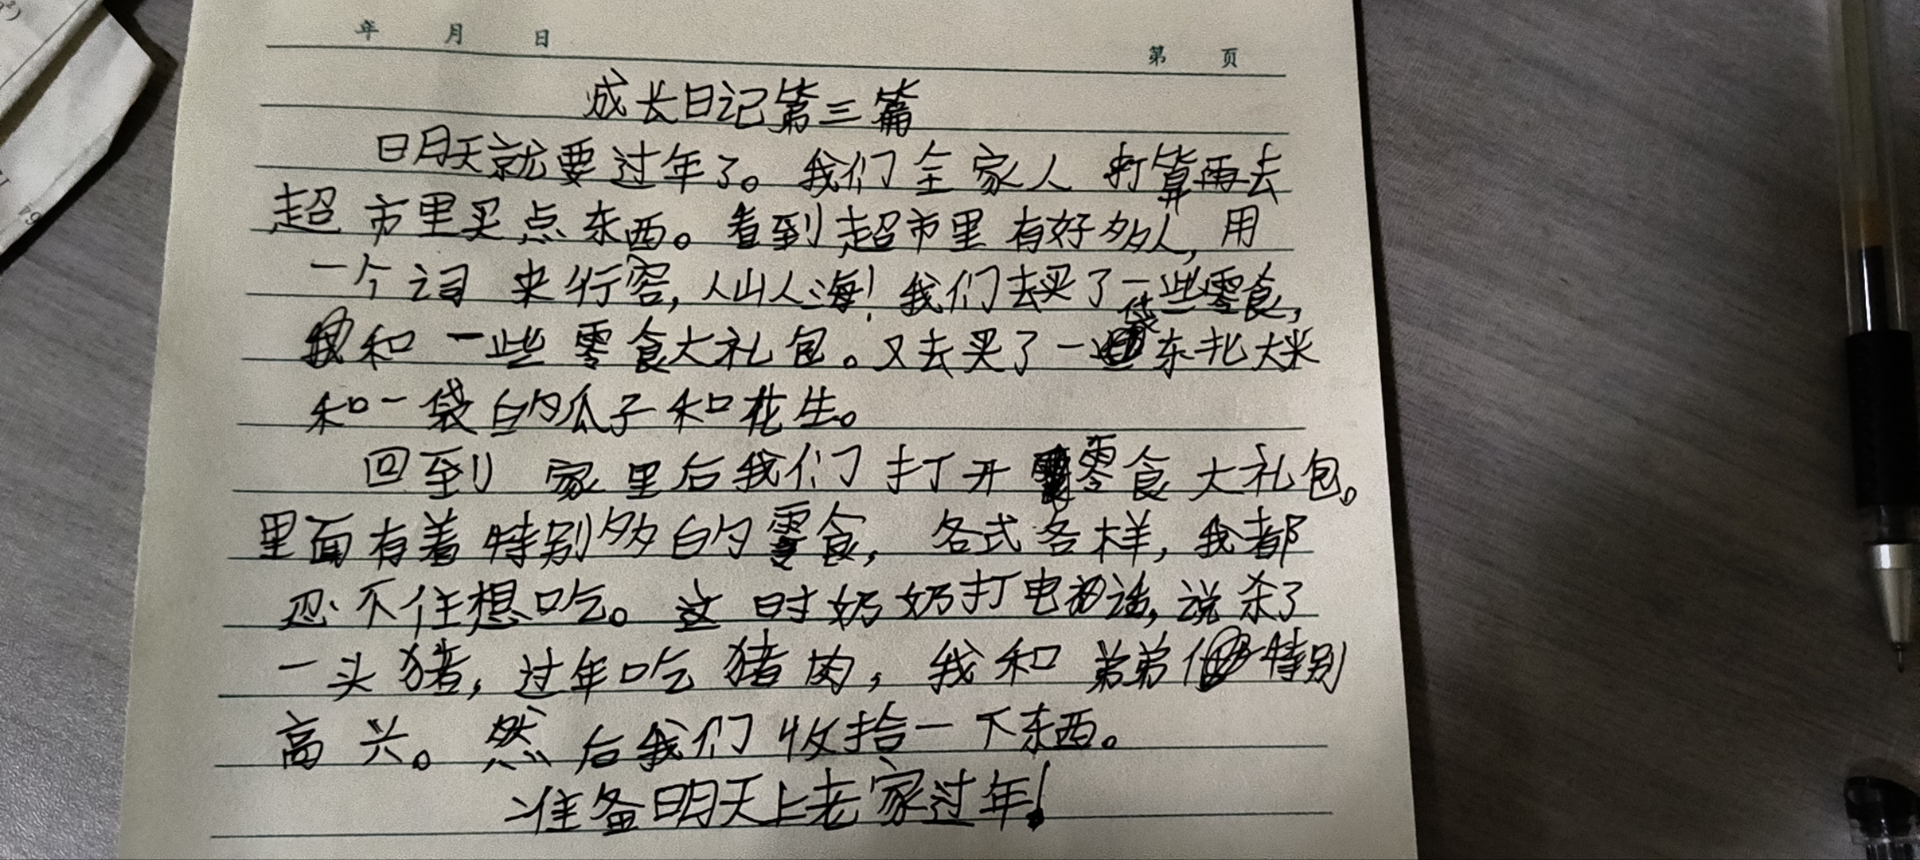 年 月 日
第 页
成长日记第三篇
明天就要过年了。我们全家人打算再去
超市里买点东西。看到超市里有好多人,用
一个词来行容,人山人海!我们去买了一些零食,
和一些零食大礼包。又去买了一袋东北大米
和一袋的瓜子和花生。
回到家里后我们打开零食大礼包。
里面有着特别多的零食,各式各样,我都
忍不住想吃。这时奶奶打电话,说杀了
一头猪,过年吃猪肉,我和弟弟特别
高兴。然后我们收拾一下东西。
准备明天上老家过年!